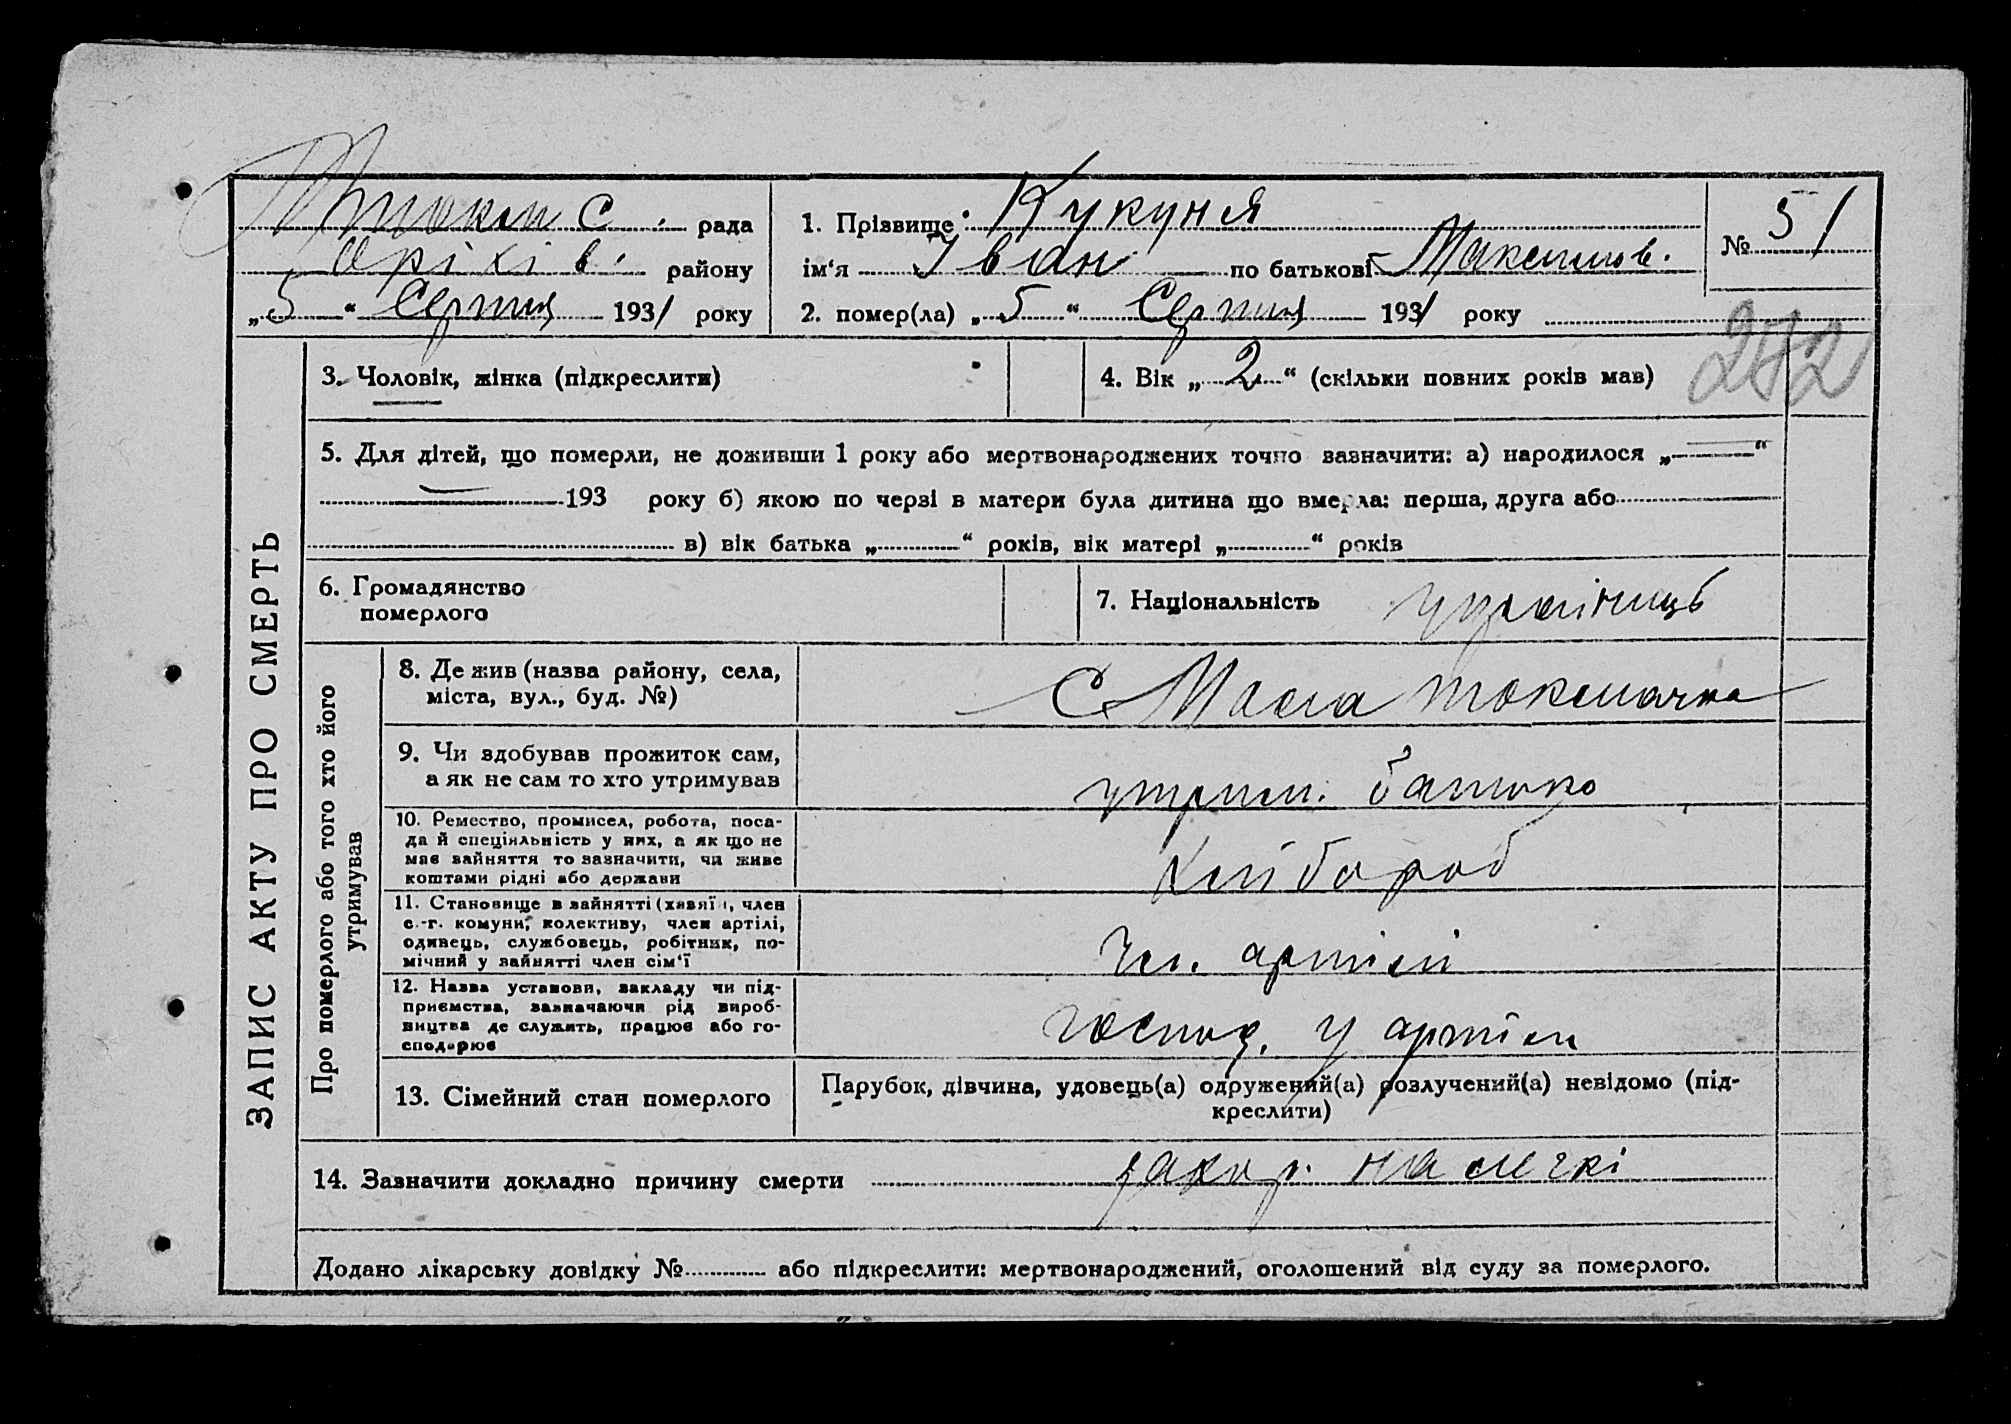 М токм С. рада
Оріхів. району
„5“ Серпня 1931 року
1. Прізвище Кукуня
ім‘я Іван по батькові Максимов.
2. помер(ла) „5“ Серпня 1931 року
№ 51
272
ЗАПИС АКТУ ПРО СМЕРТЬ
3. Чоловік, жінка (підкреслити)
4. Вік „2“ (скільки повних років мав)
5. Для дітей, що померли, не доживши 1 року або мертвонароджених точно зазначити: а) народилося „—“
— 193 року б) якою по черзі в матери була дитина що вмерла: перша, друга або
в) вік батька „ “ років, вік матері „ “ років
6. Громадянство
померлого
7. Національність українець
Про померлого або того хто його
утримував
8. Де жив (назва району, села,
міста, вул., буд. №)
С Мала токмачка
9. Чи здобував прожиток сам,
а як не сам то хто утримував
утрим. батько
10. Ремество, промисел, робота, поса-
да й спеціяльність у них, а як що не
має зайняття то зазначити, чи живе
коштами рідні або держави
хлібороб
11. Становище в зайнятті (хазяїн, член
с.-г. комуни, колективу, член артілі,
одинець, службовець, робітник, по-
мічний у зайнятті член сім‘ї
Чл. артілі
12. Назва установи, закладу чи під-
приємства, зазначаючи рід вироб-
ництва де служить, працює або го-
сподарює
господ. у артіли
13. Сімейний стан померлого
Парубок, дівчина, удовець(а) одружений(а) розлучений(а) невідомо (під-
креслити)
14. Зазначити докладно причину смерти захор. на легкі
Додано лікарську довідку № або підкреслити: мертвонароджений, оголошений від суду за померлого.